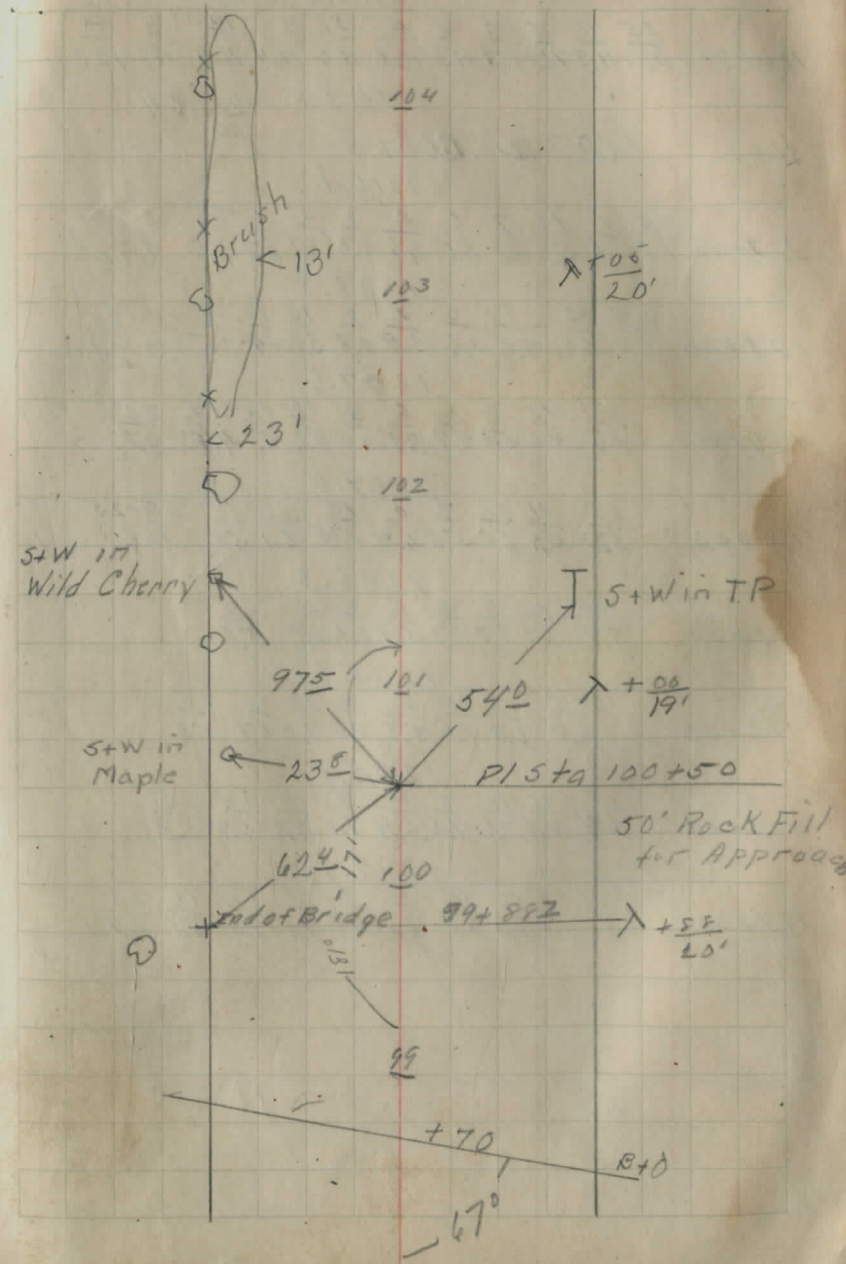 104
Brush
13'
+05
20'
103
23'
102
S+W in
Wild Cherry
S+W in TP
975
101
540
+00
19'
S+W in
Maple
238
PI Sta 100+50
50' Rock Fill
for Approach
624
17'
100
End of Bridge
99+882
+88
20'
99
+70
B+O
67°